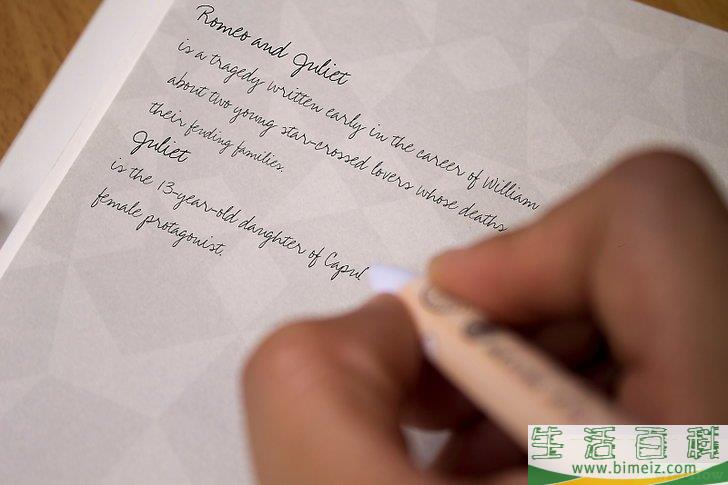 Romeo and Juliet
is a tragedy written early in the career of William
about two young star-crossed lovers whose deaths
their feuding families.
Juliet
is the 13-year-old daughter of Capul
female protagonist.
生活百科
www.bimeiz.com